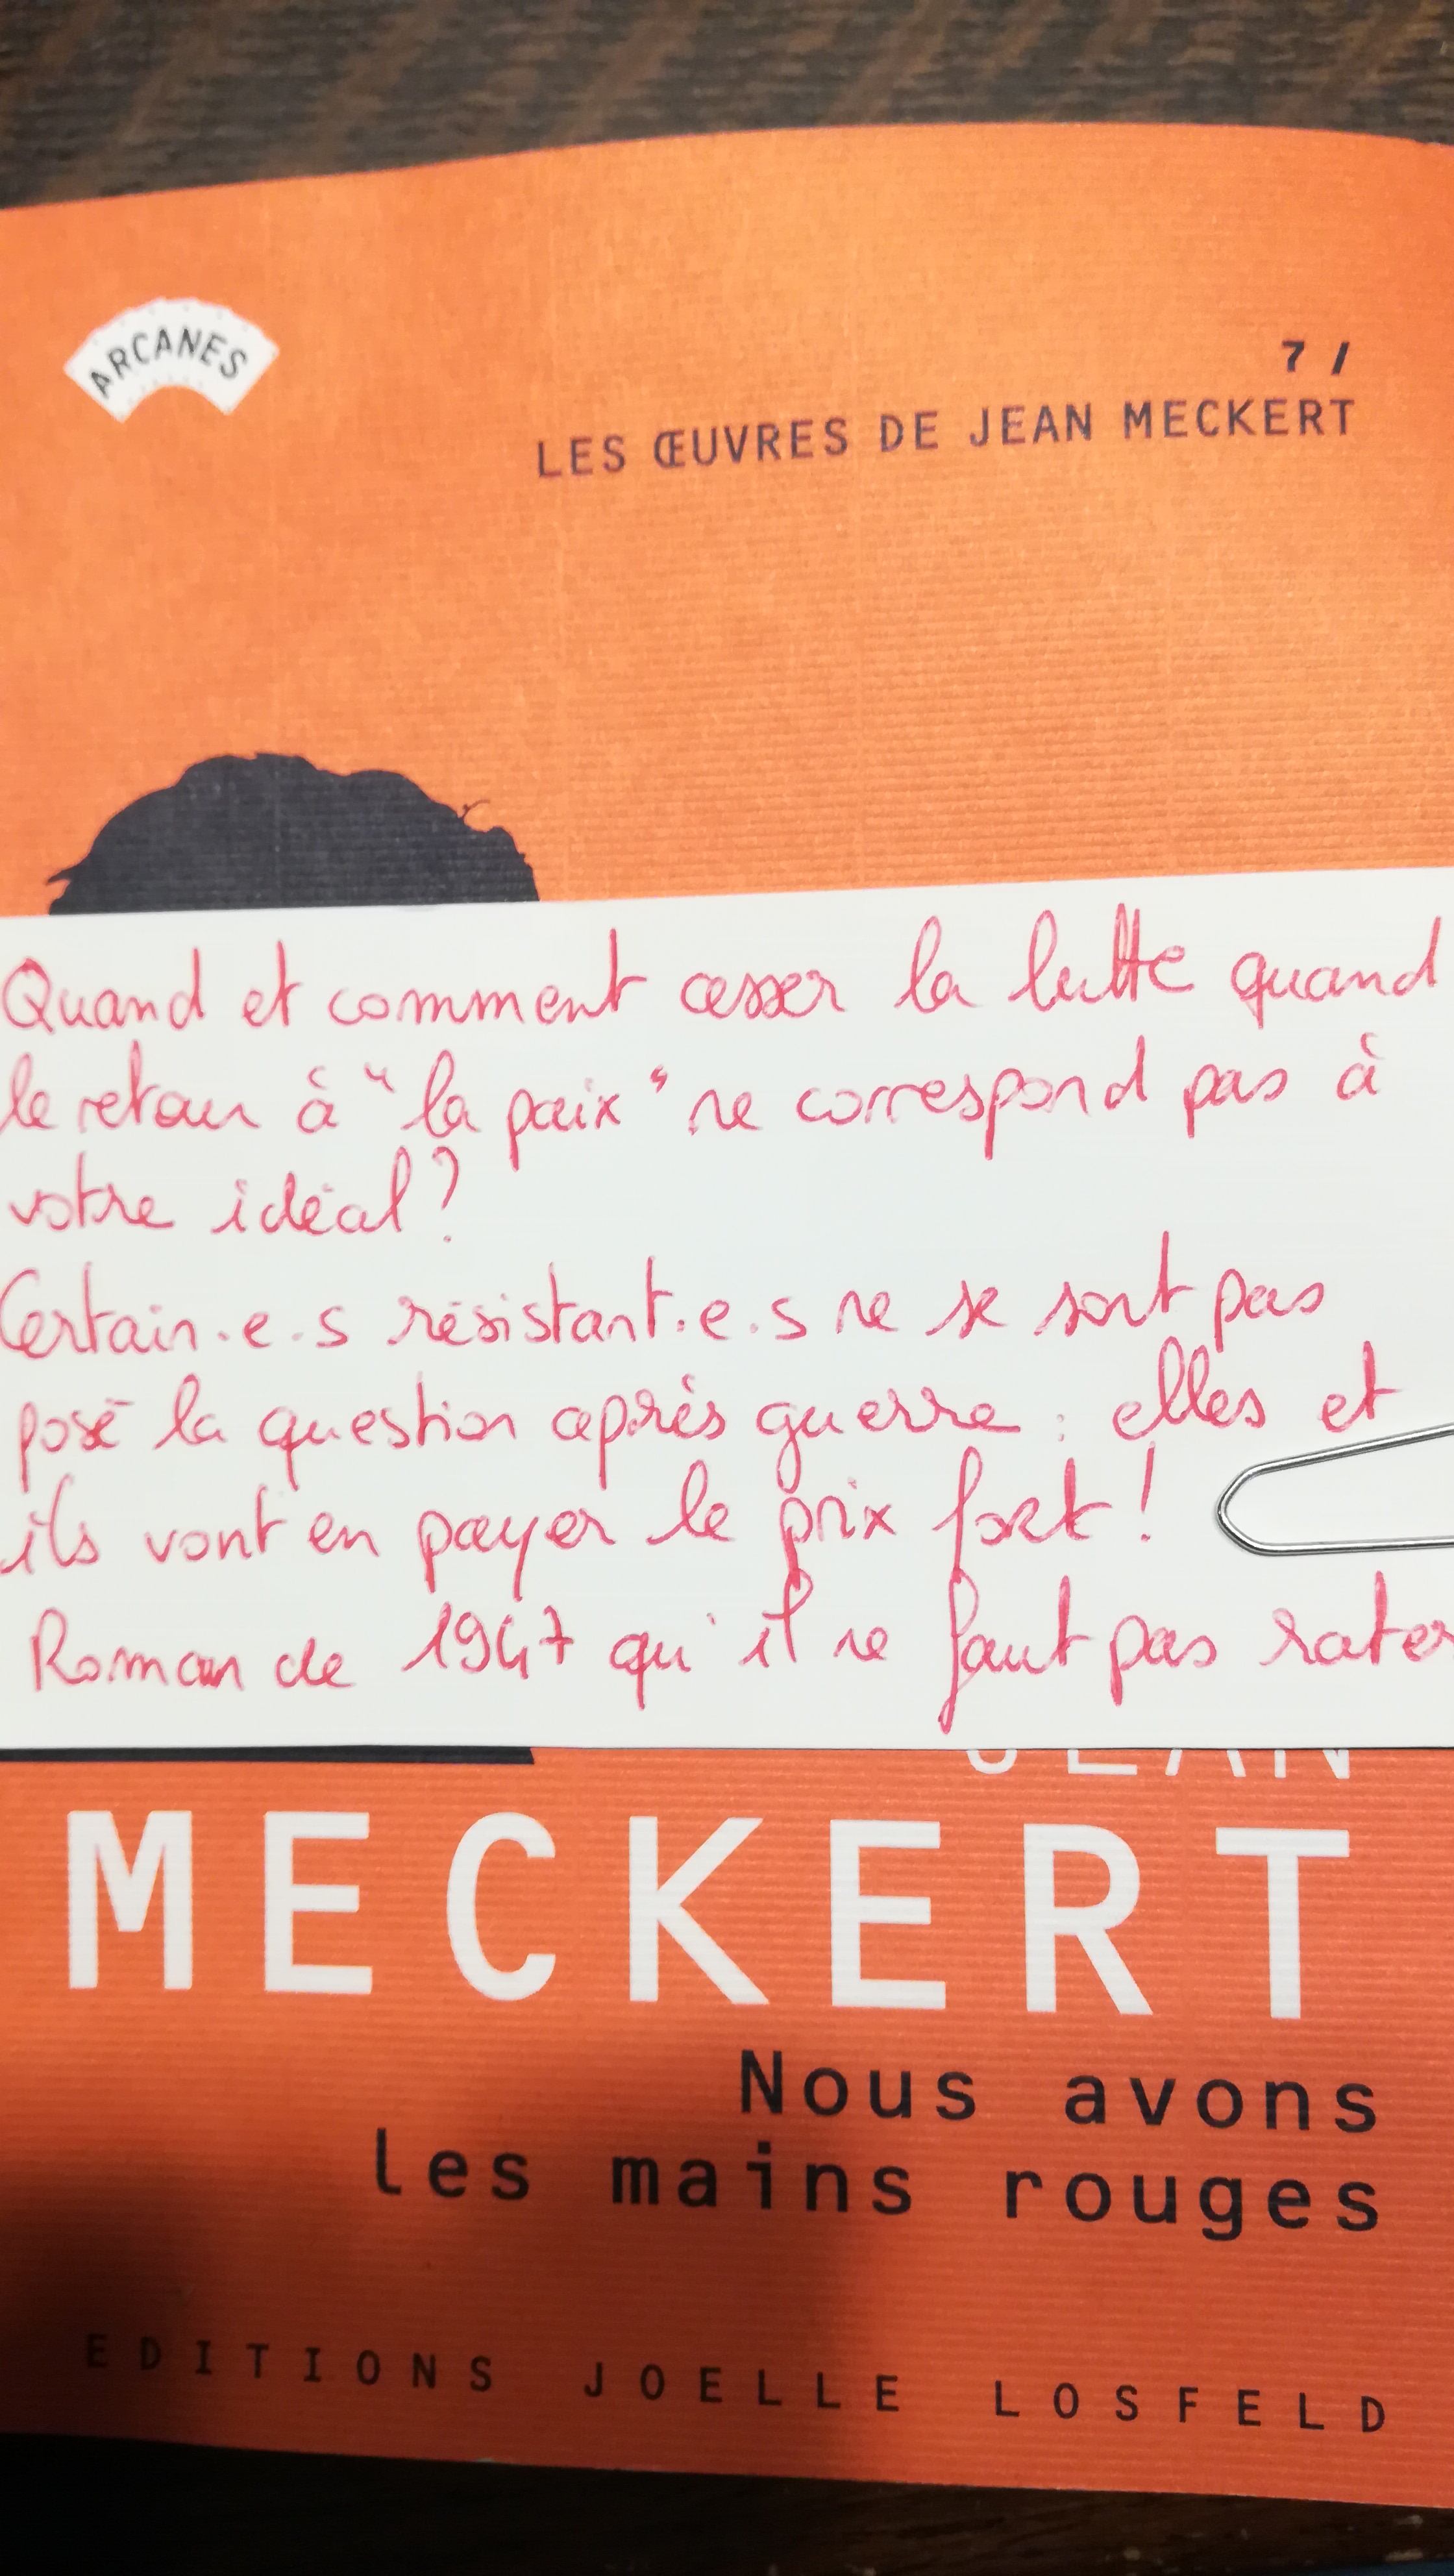 ARCANES
7 /
LES ŒUVRES DE JEAN MECKERT
Quand et comment cesser la lutte quand
le retour à "la paix" ne correspond pas à
votre idéal?
Certain.e.s résistant.e.s ne se sont pas
posé la question après guerre : elles et
ils vont en payer le prix fort !
Roman de 1947 qu'il ne faut pas rater
JEAN
MECKERT
Nous avons
les mains rouges
EDITIONS JOELLE LOSFELD